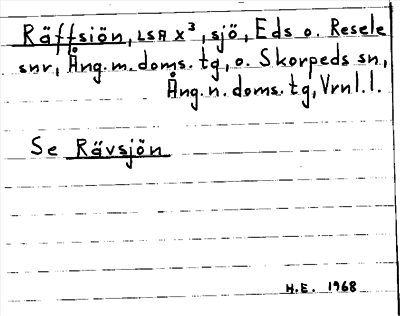 Räffsiön, LSA X³, sjö, Eds o. Resele
snr, Ång. m. doms. tg, o. Skorpeds sn,
Ång. n. doms. tg, Vrnl. l.
Se Rävsjön
H.E. 1968